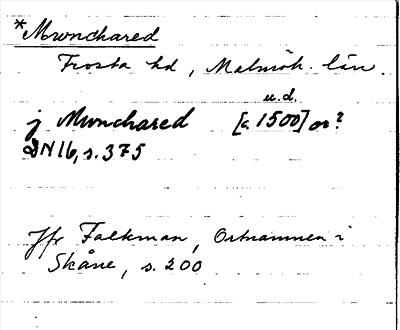 *Mwnchared
Frosta hd, Malmöh. län.
u.d.
j Mwnchared [c. 1500] or?
DN 16, s. 375
Jfr Falkman, Ortnamnen i
Skåne, s. 200